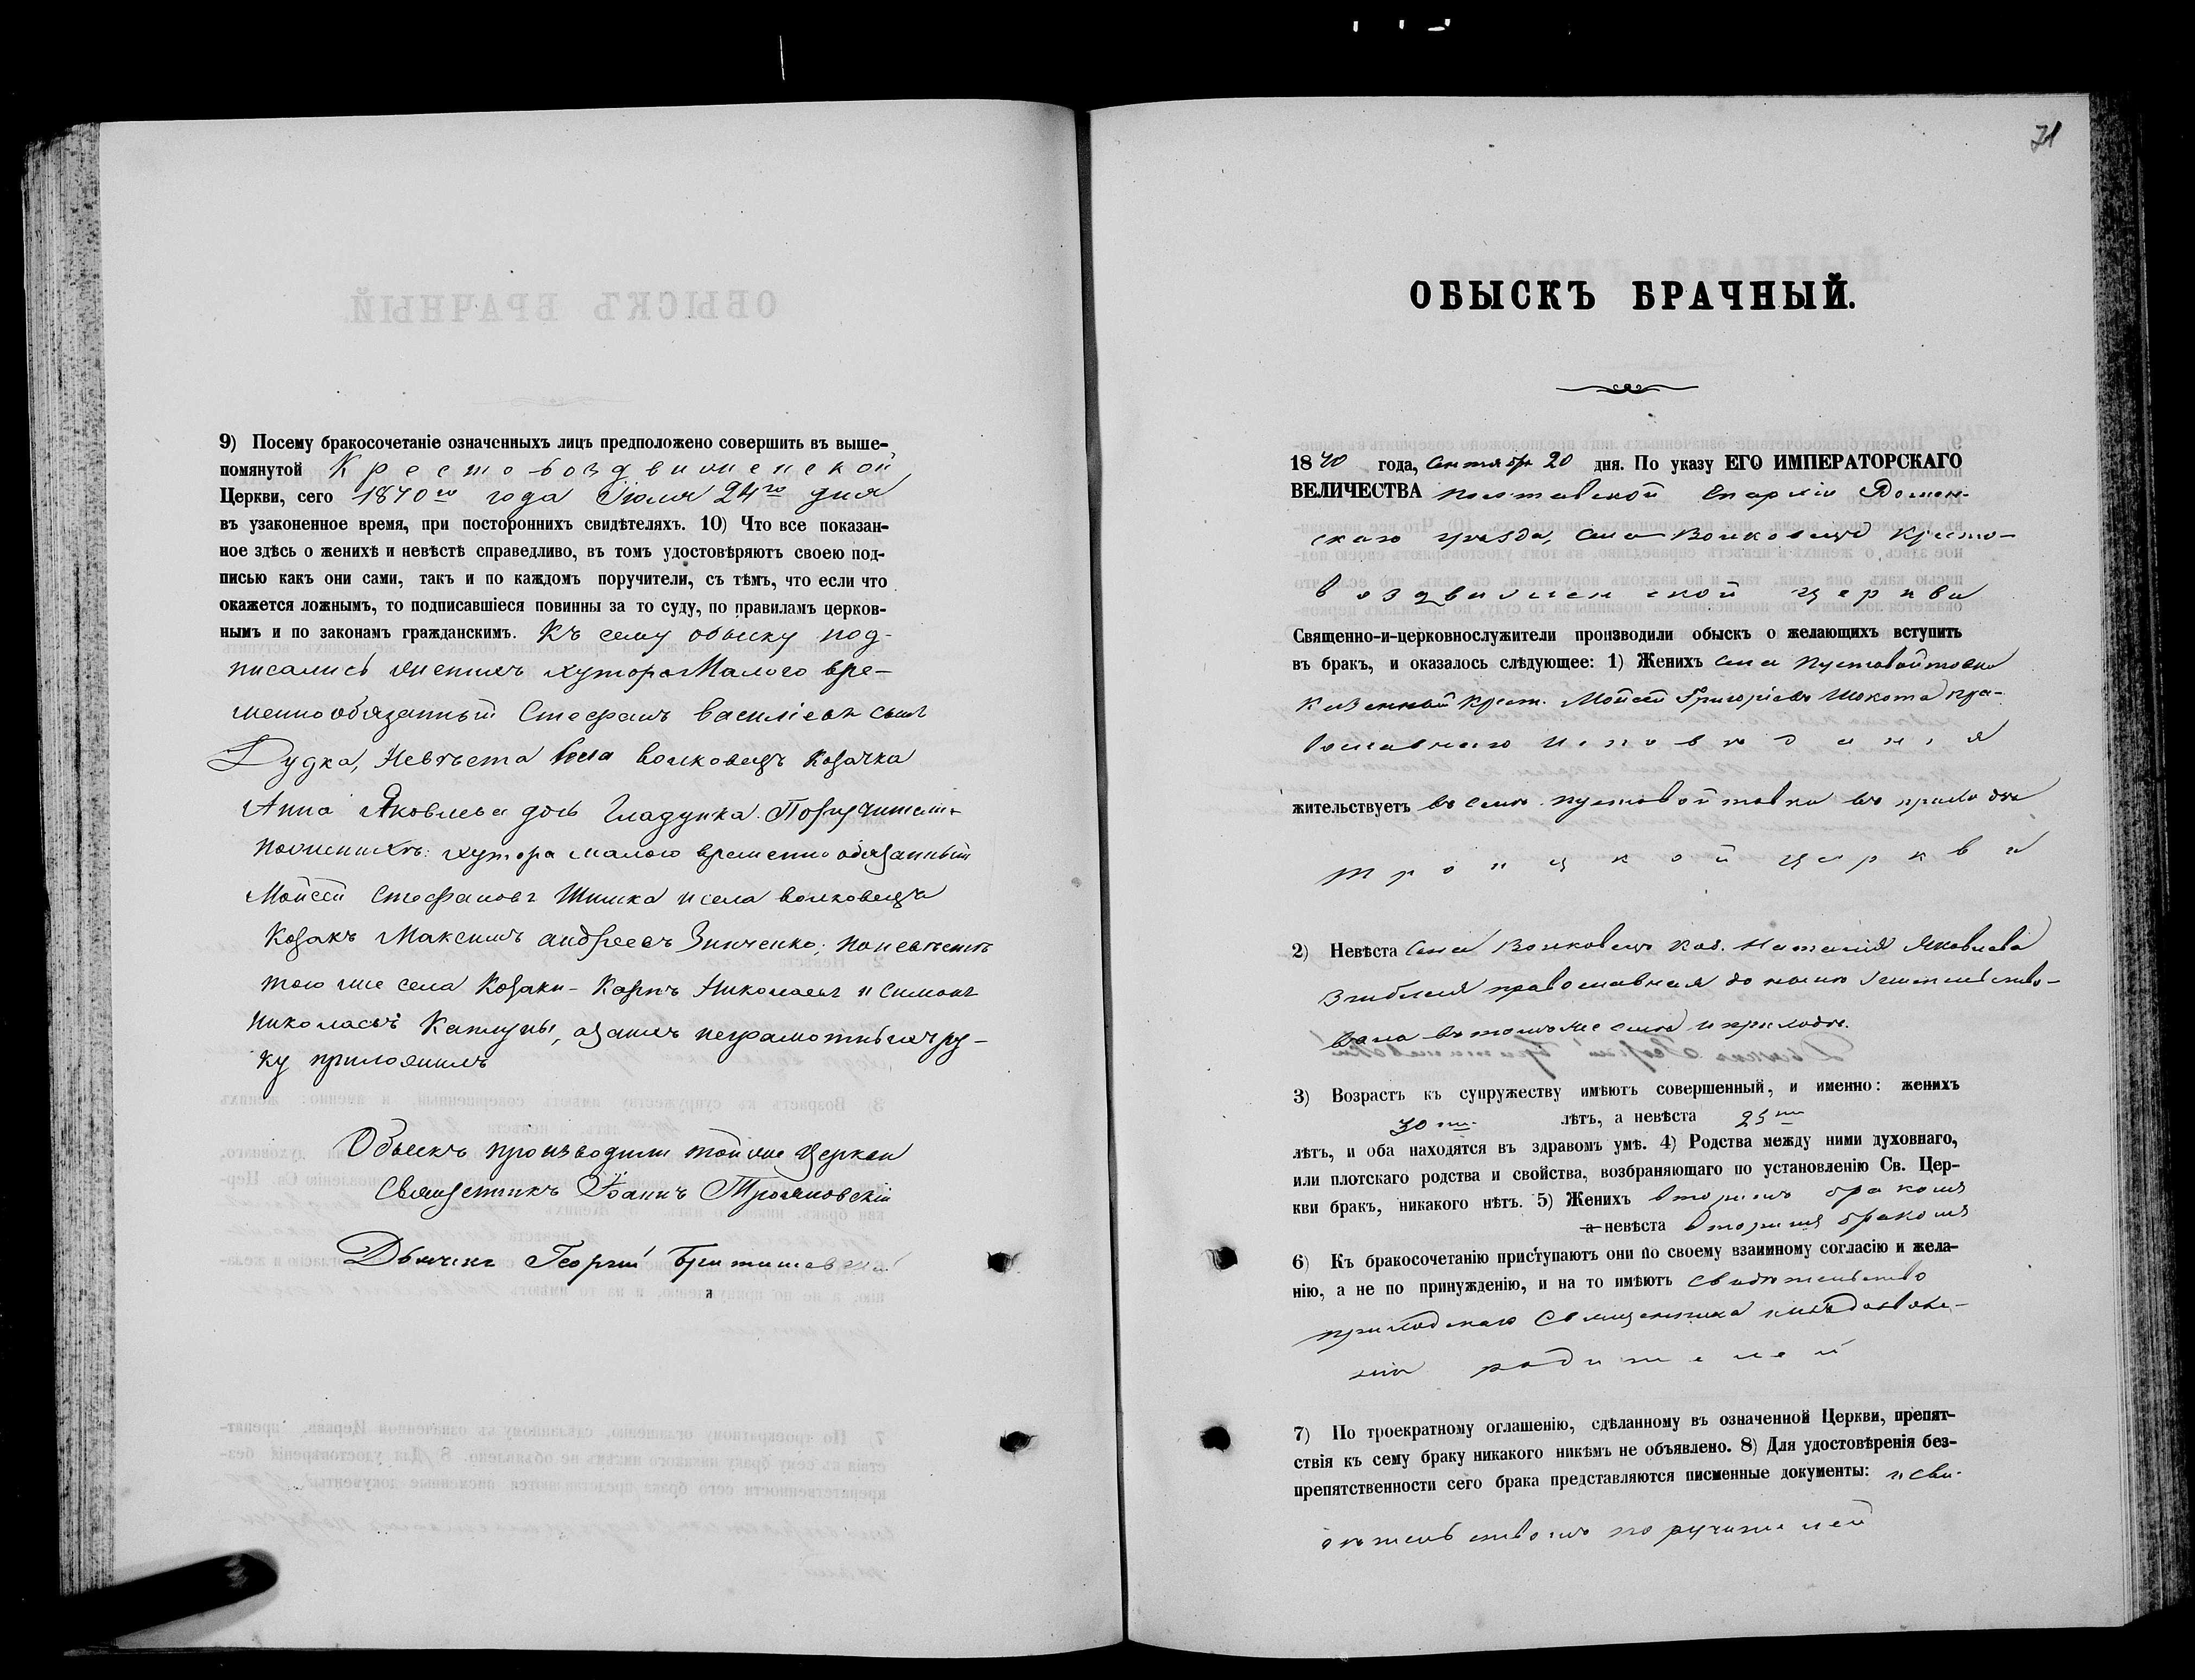 9) Посему бракосочетаніе означенныхъ лицъ предположено совершить въ выше-
помянутой Крестовоздвиженской
Церкви, сего 1870го года Іюля 24го дня
въ узаконенное время, при постороннихъ свидѣтеляхъ. 10) Что все показан-
ное здѣсь о женихѣ и невѣстѣ справедливо, въ томъ удостовѣряютъ своею под-
писью какъ они сами, такъ и по каждомъ поручители, съ тѣмъ, что если что
окажется ложнымъ, то подписавшіеся повинны за то суду, по правиламъ церков-
нымъ и по законамъ гражданскимъ. Къ сему обыску под-
писались женихъ хутора Малого вре-
менно обязанный Стефанъ Василіевъ сынъ
Дудка, Невѣста села Волковецъ козачка
Анна Яковлева дочь Гладунка. Поручители
по женихѣ: хутора Малого временно обязанный
Мойсей Стефановъ Шишка и села Волковецъ
Козакъ Максимъ Андреевъ Зинченко; по невѣстѣ
того же села Козаки - Карпъ Николаевъ и Симонъ
Николаевъ Каплуны, а за нихъ неграмотныхъ ру-
ку приложилъ
Обыскъ производили той же Церкви
Священникъ Іоаннъ Трояновскій
Дьячекъ Георгій
71
ОБЫСКЪ БРАЧНЫЙ.
1870 года, Сентября 20 дня. По указу ЕГО ИМПЕРАТОРСКАГО
ВЕЛИЧЕСТВА Полтавской Епархіи Ромен-
скаго уѣзда, села Волковецъ Кресто-
воздвиженской церкви
Священно-и-церковнослужители производили обыскъ о желающихъ вступить
въ бракъ, и оказалось слѣдующее: 1) Женихъ села Пустовойтовки
казенный крест. Мойсей Григоріевъ Шокота пра-
вославнаго исповѣданія
жительствуетъ въ селѣ Пустовойтовки въ приходѣ
Троицкой церкви
2) Невѣста села Волковецъ коз. Наталія Яковлева
православная до ныне жительство-
вала въ томъ же селѣ и приходѣ.
3) Возрастъ къ супружеству имѣютъ совершенный, и именно: женихъ
30ти. лѣтъ, а невѣста 25ти
лѣтъ, и оба находятся въ здравомъ умѣ. 4) Родства между ними духовнаго,
или плотскаго родства и свойства, возбраняющаго по установленію Св. Цер-
кви бракъ, никакого нѣтъ. 5) Женихъ вторимъ бракомъ
а невѣста вторимъ бракомъ
6) Къ бракосочетанію приступаютъ они по своему взаимному согласію и жела-
нію, а не по принужденію, и на то имѣютъ свидѣтельство
приходскаго Священника и позволе-
ніе родителей
7) По троекратному оглашенію, сдѣланному въ означенной Церкви, препят-
ствія къ сему браку никакого никѣмъ не объявлено. 8) Для удостовѣренія без-
препятственности сего брака представляются писменные документы: и сви-
дѣтельствомъ поручителей